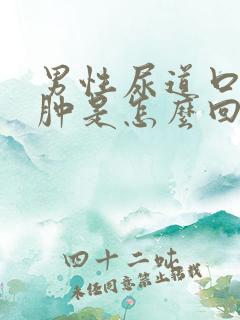 男性尿道口
肿是怎么回
四十二蚾
未经同意禁止转载